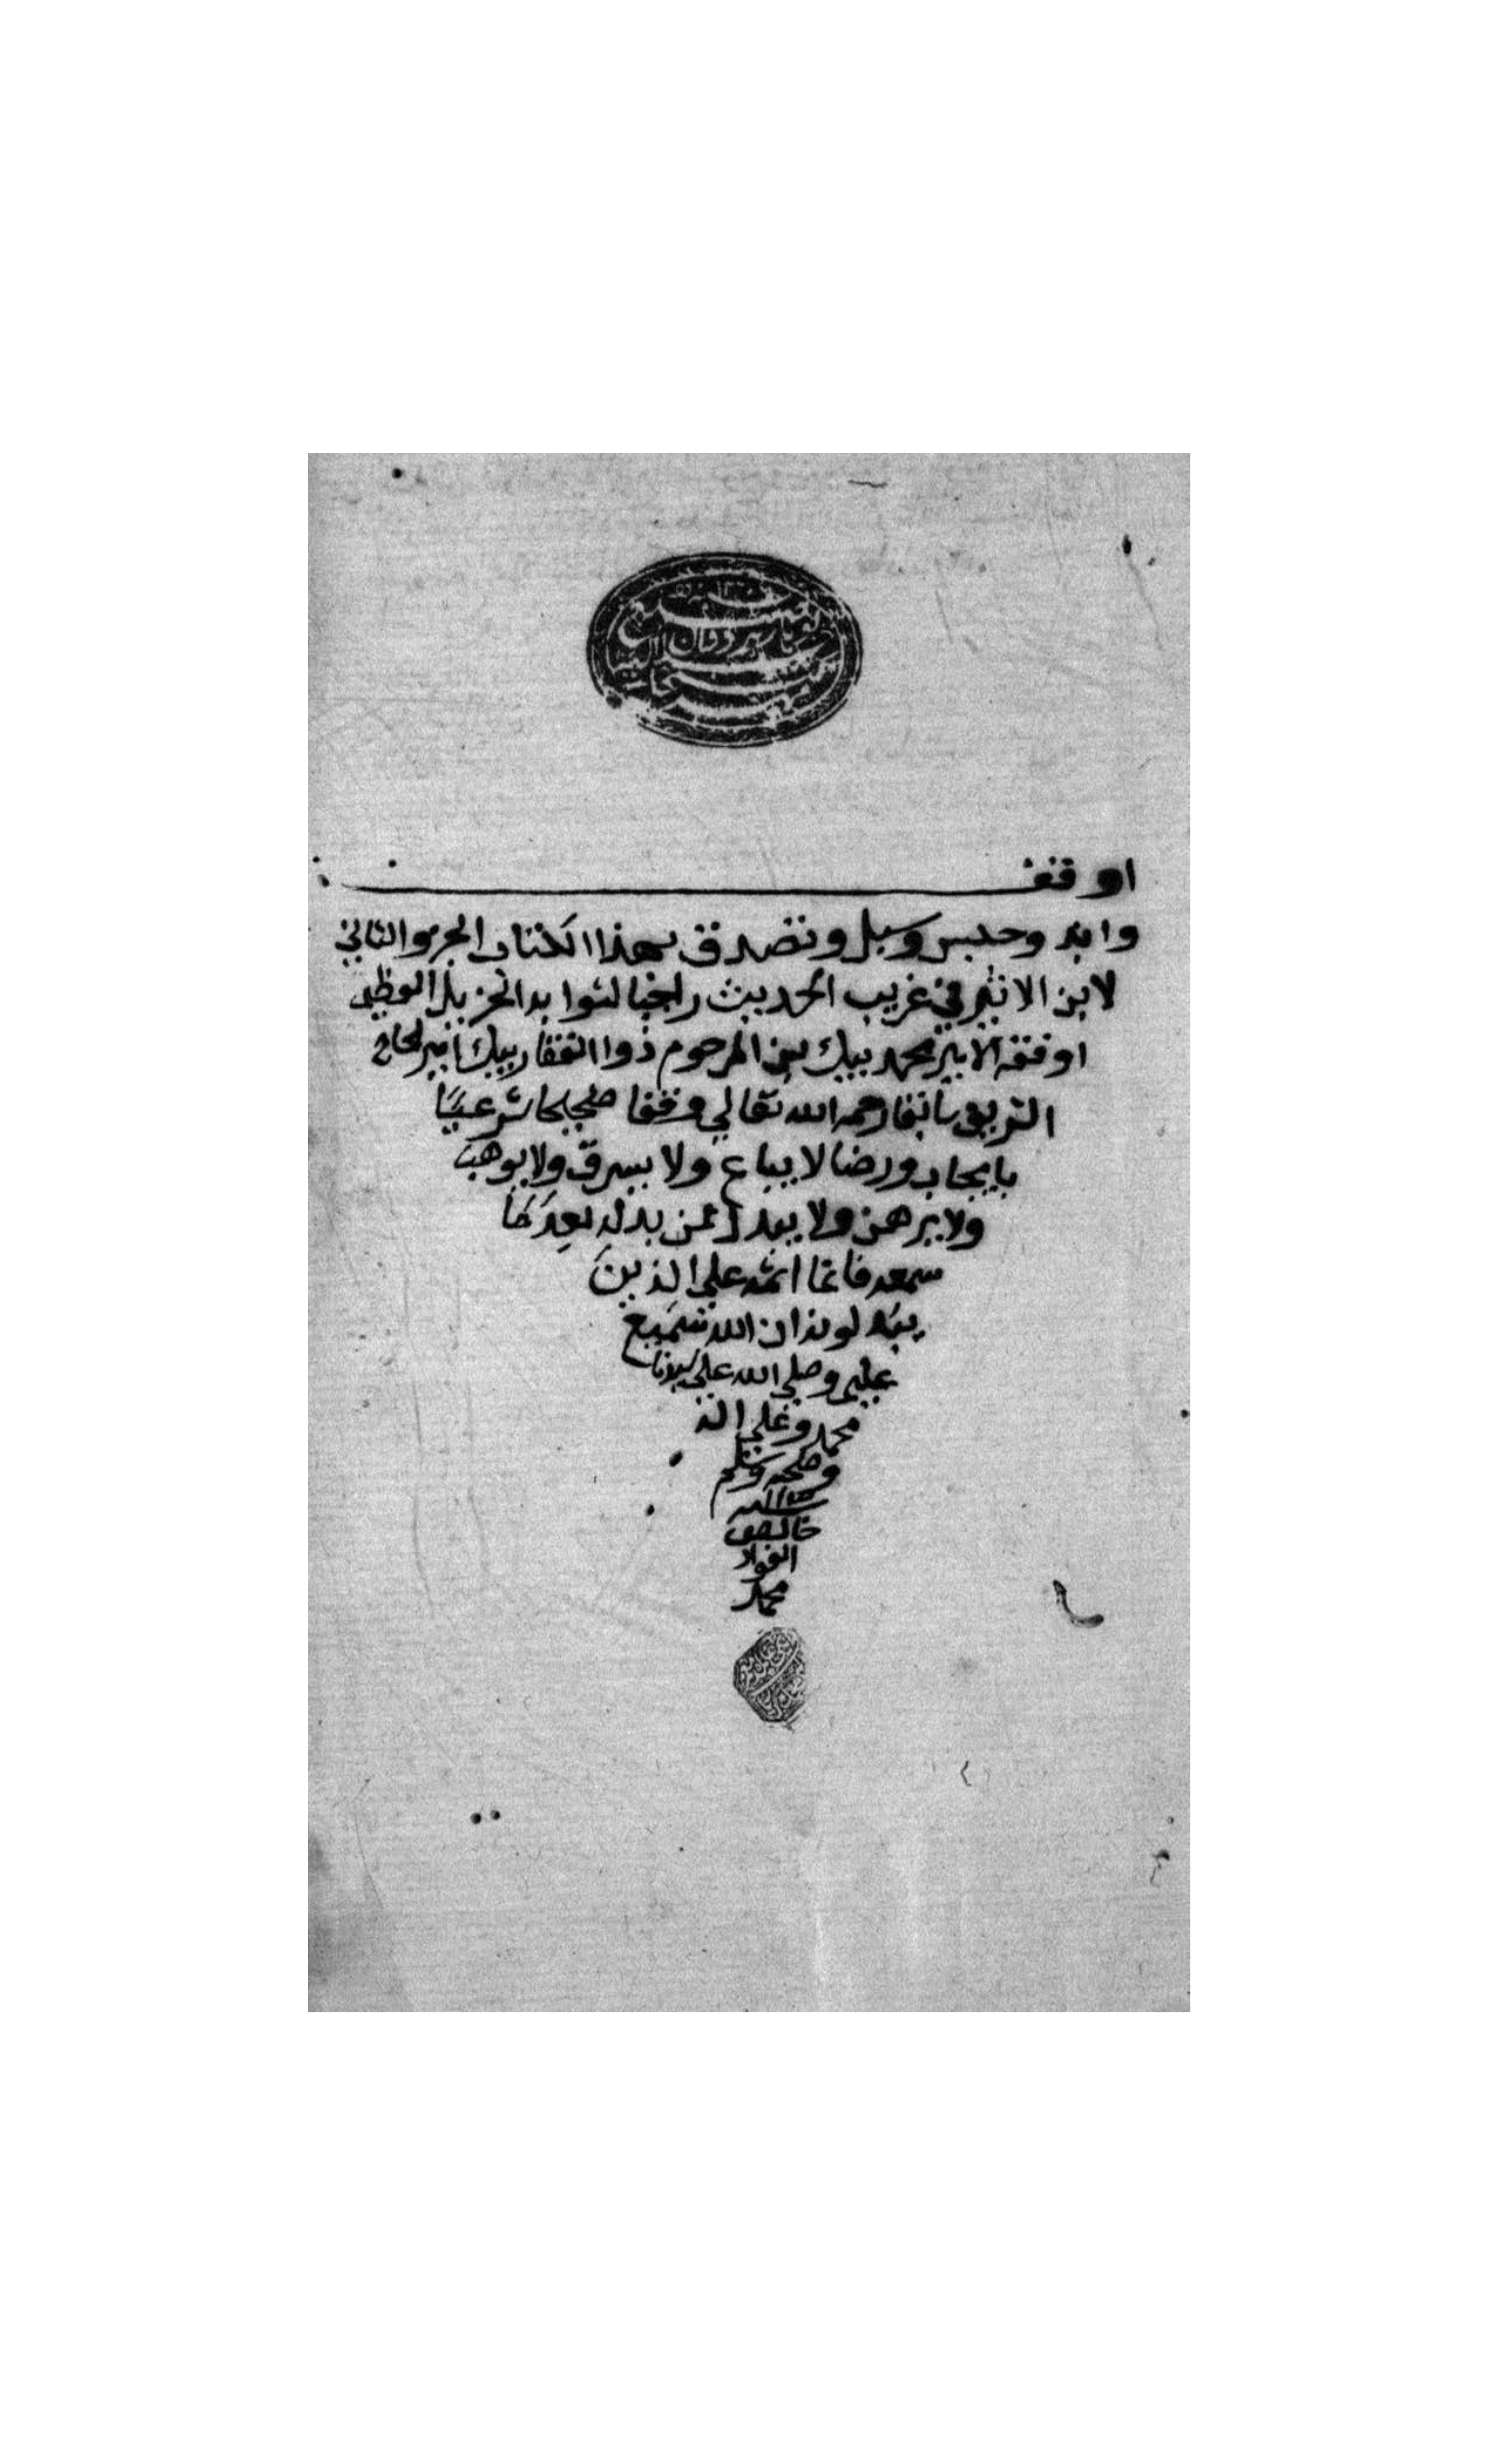 اوقف
وابد وحبس وسبل وتصدق بهذا الكتاب الجزو الثاني
لابن الاثير في غريب الحديث راجيا لثوابه الجزيل العظيم
اوقفه الامير محمد بيك بن المرحوم ذوا الفقار بيك امير الحاج
الشريف سابقا رحمه الله تعالي وقفا صحيحا شرعيا
بايجاب ورضا لا يباع ولا يسرق ولا يوهب
ولا يرهن ولا يبدل فمن بدله بعد ما
سمعه فانما اثمه علي الذين
يبدلونه ان الله سميع
عليم وصلي الله علي سيدنا
محمد وعلي اله
وصحبه وسلم
خالص
الفواد
محمد